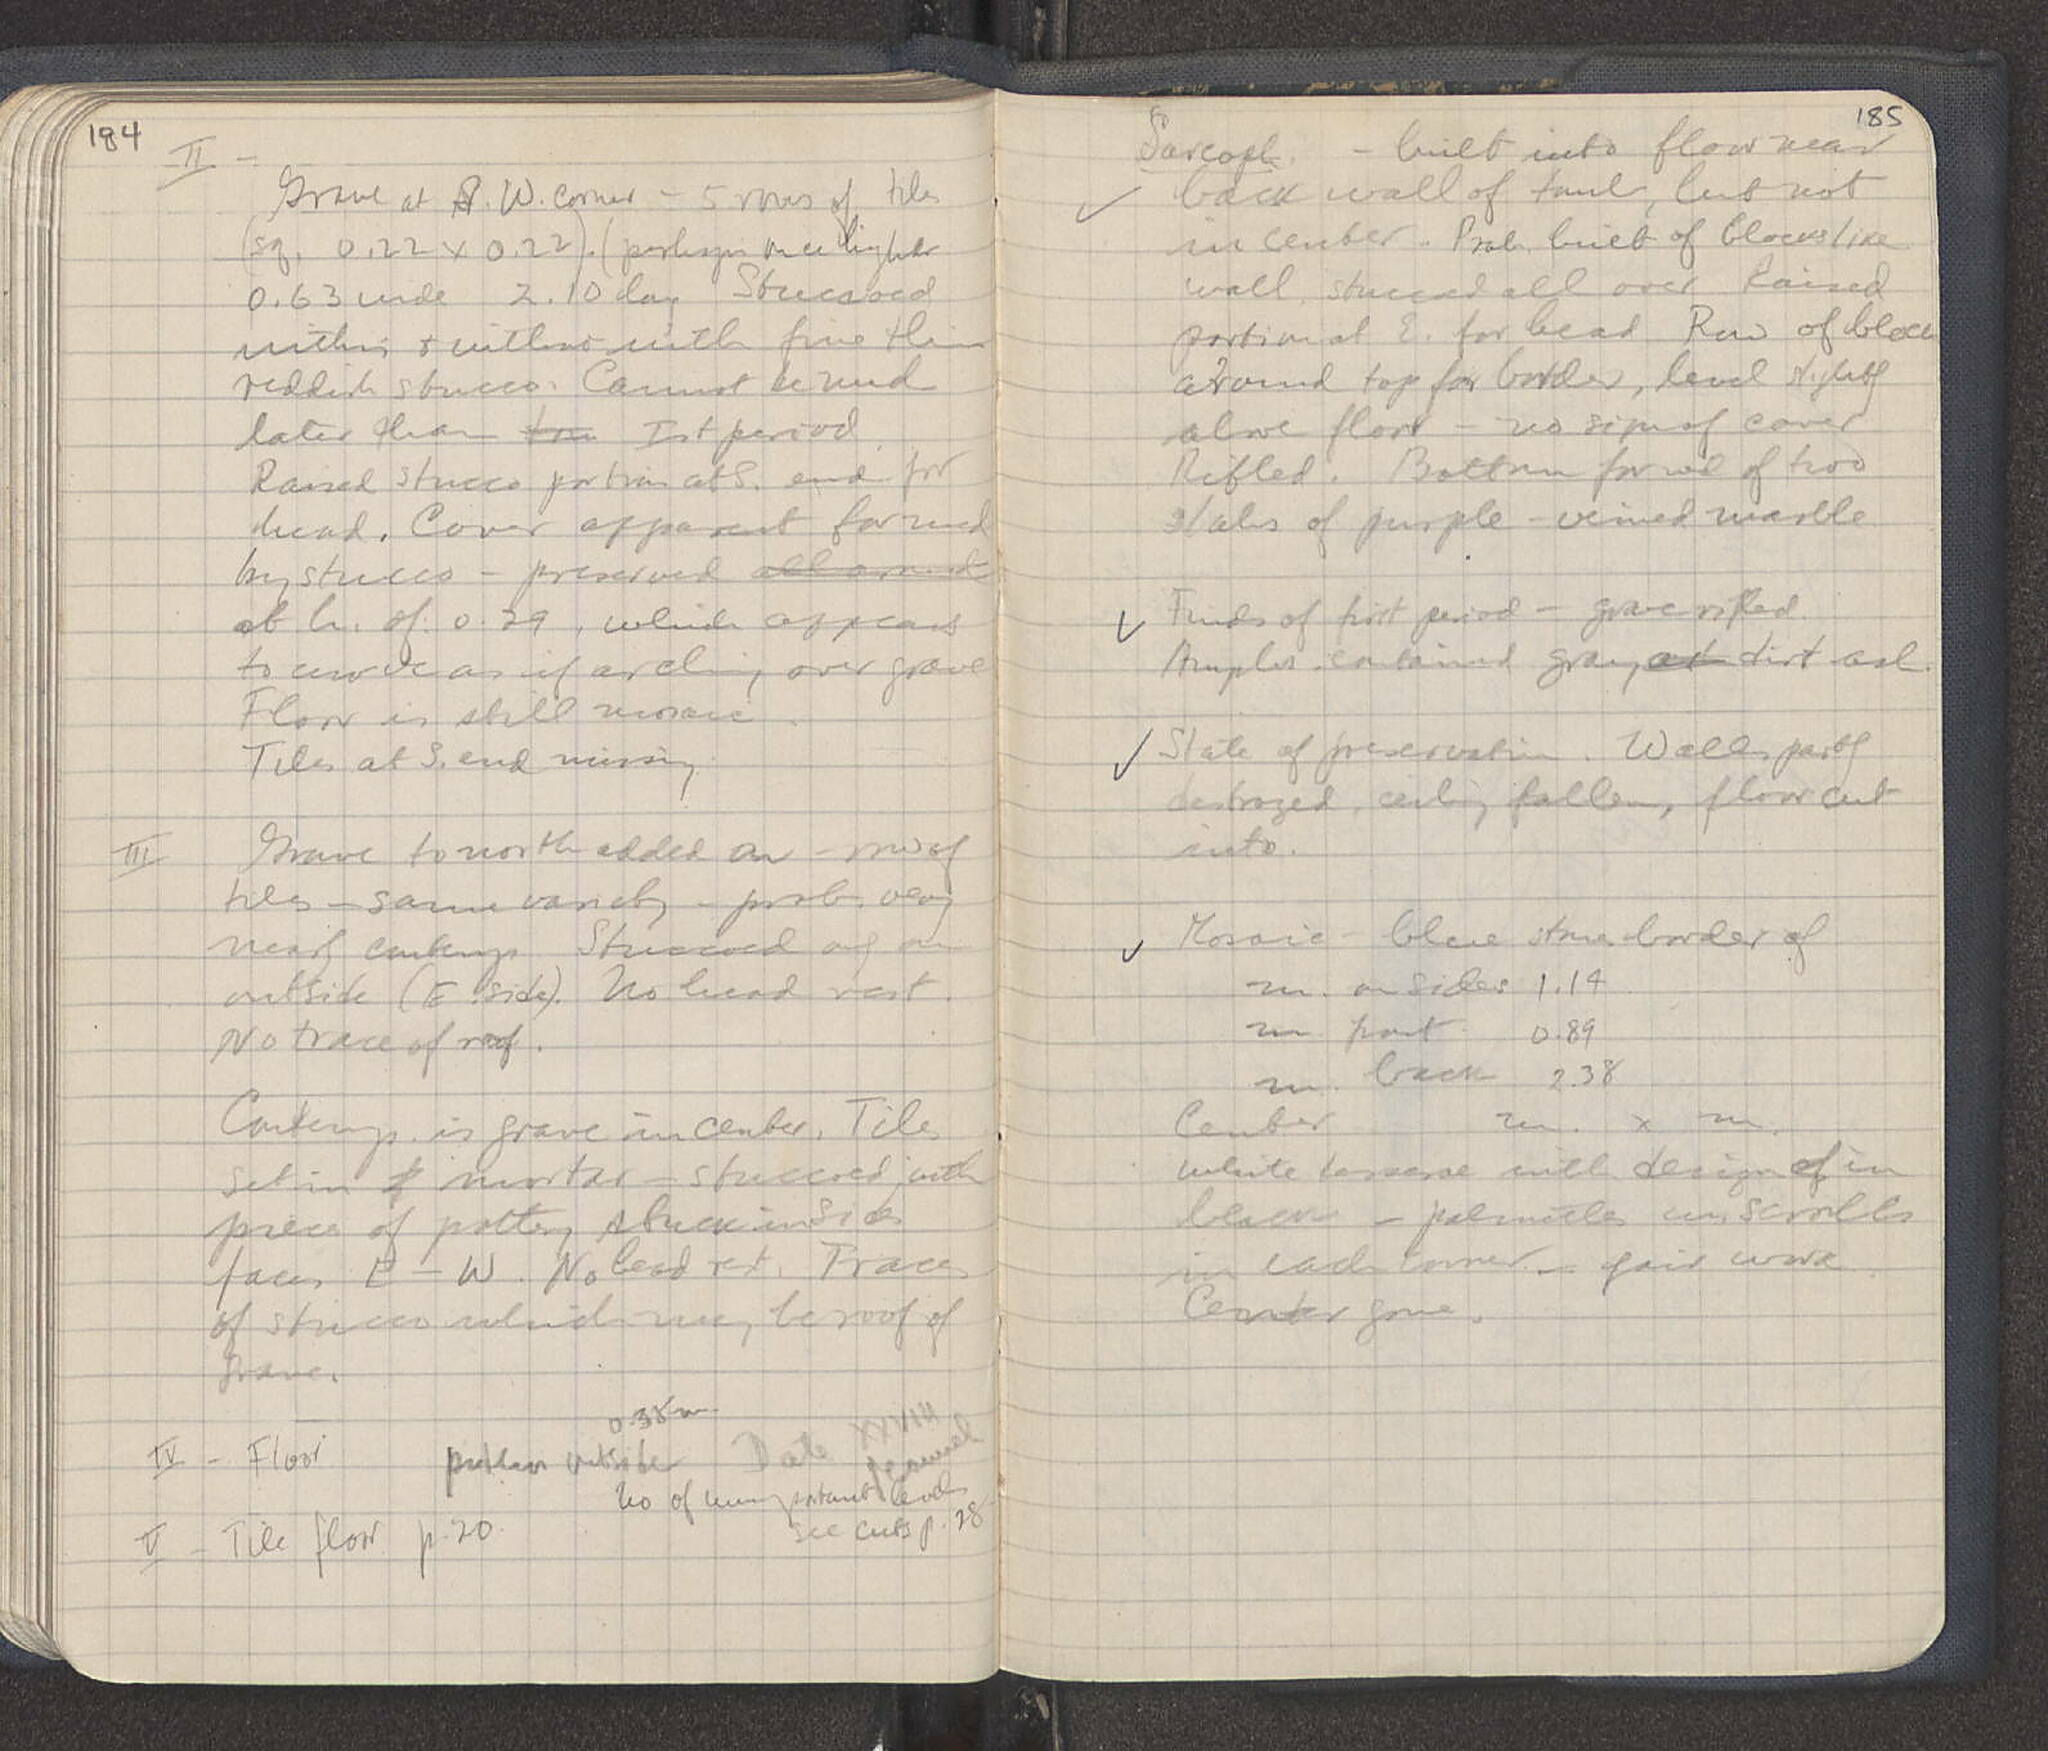 184
II -
Grave at S.W. corner - 5 rows of tiles
(sq. 0.22 x 0.22). (perhaps once higher
0.63 wide 2.10 long Stuccoed
within & without with fine thin
reddish stucco. Cannot be much
later than Ist period.
Raised stucco portion at S. end for
head. Cover apparent formed
by stucco - preserved all around
at h. of 0.29, which appears
to curve as if arching over grave
Floor is still mosaic.
Tiles at S. end missing
III Grave to north added on - row of
tiles - same variety - prob. very
nearly contemp. Stuccoed only on
outside (E side). No head rest.
No trace of roof.
Contemp. is grave in center. Tiles
set in mortar - stuccoed, with
piece of pottery stuck in sides
faces E - W. No head rest. Traces
of stucco which may be roof of
grave.
0.38 m
IV - Floor outside Date XXVIII
no of
V - Tile floor p. 20. see cuts p. 28
185
Sarcoph. - built into floor near
back wall of tomb, but not
in center. Prob. built of blocks like
wall stuccoed all over Raised
portion at E. for head Row of block
around top for border, level slightly
above floor - no sign of cover
Rifled. Bottom formed of two
slabs of purple-veined marble
Finds of first period - grave rifled.
Amphor. contained gray dirt ash.
State of preservation. Walls partly
destroyed, ceiling fallen, floor cut
into.
Mosaic - blue stone border of
m. on sides 1.14
m front 0.89
m. back 2.38
Center m. x m.
white tesserae with design of in
black - palmettes in scrolls
in each corner - fair work
Center gone.